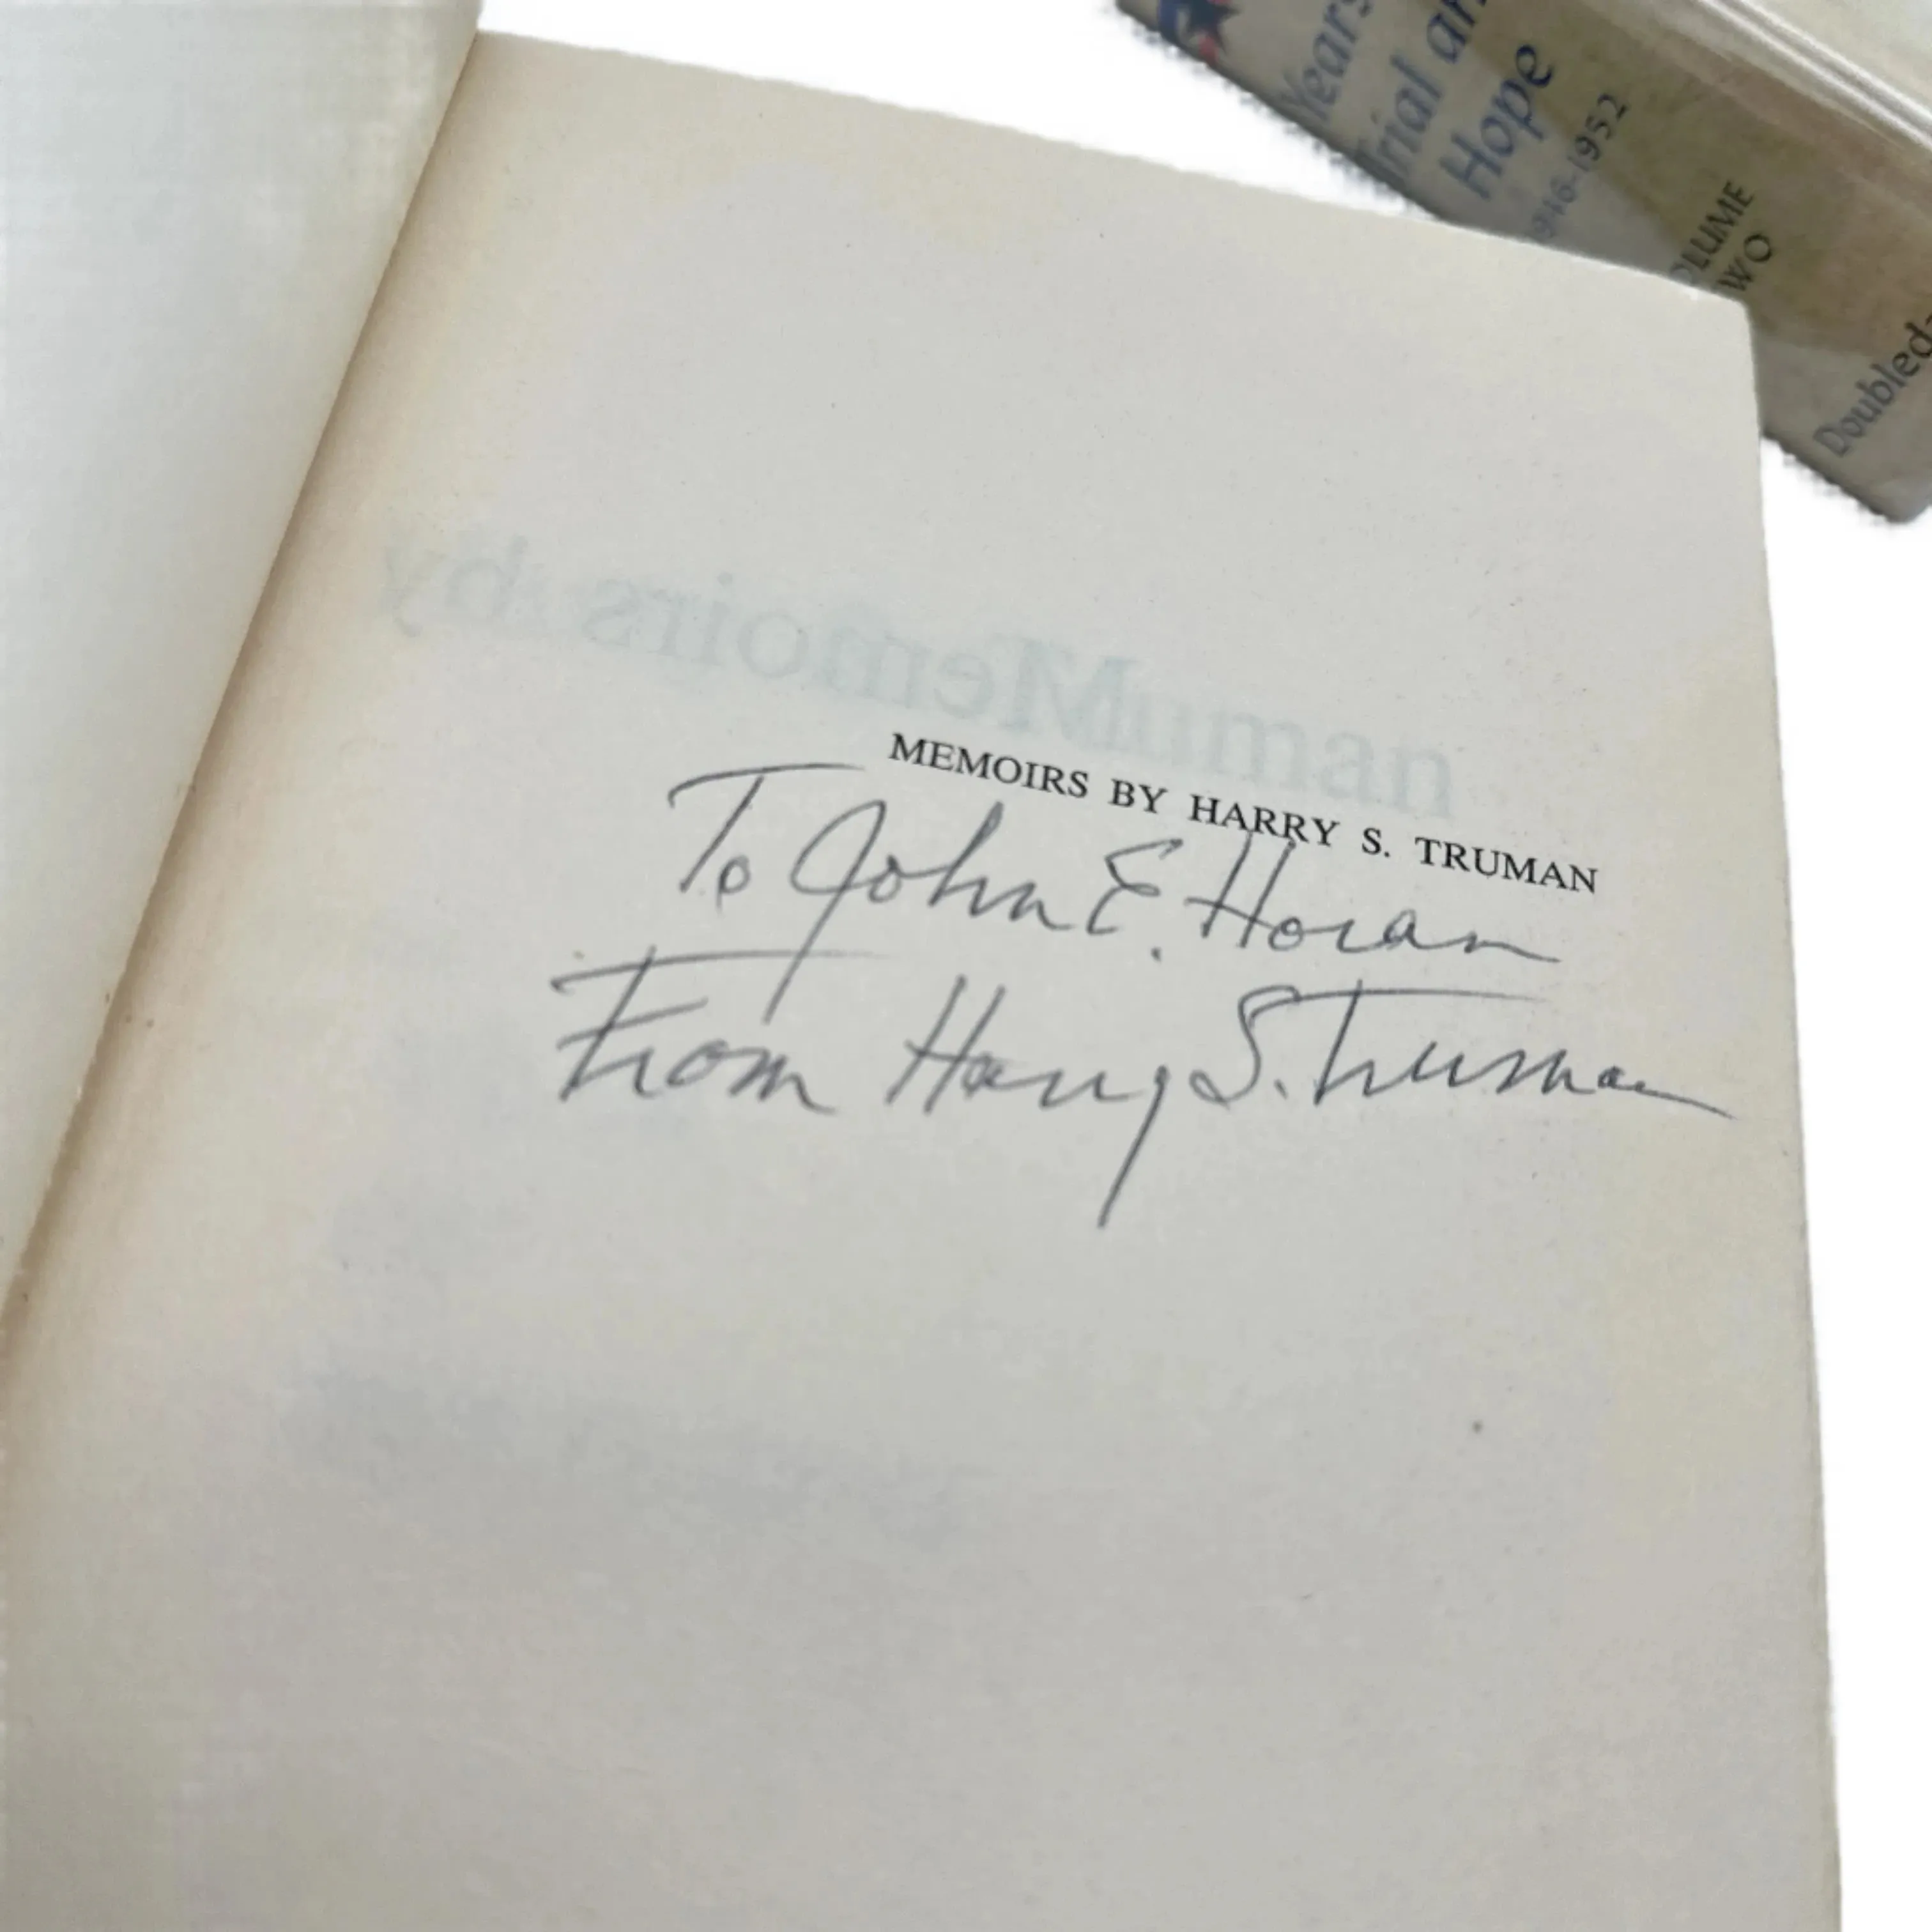 Years
Trial an
Hope
1946-1952
VOLUME
TWO
Doubled
Memoirs by
Truman
MEMOIRS BY HARRY S. TRUMAN
To John E. Horan
From Harry S. Truman